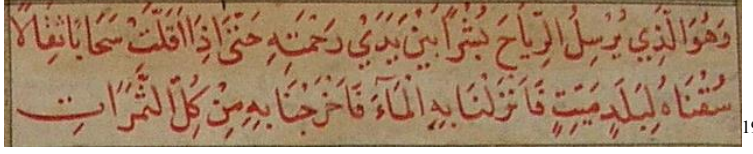 وَهُوَ الَّذِي يُرْسِلُ الرِّيَاحَ بُشْرًا بَيْنَ يَدَيْ رَحْمَتِهِ حَتَّى اِذَا اَقَلَّتْ سَحَابًا ثِقَالًا
سُقْنَاهُ لِبَلَدٍ مَيِّتٍ فَاَنْزَلْنَا بِهِ الْمَآءَ فَاَخْرَجْنَا بِهِ مِنْ كُلِّ الثَّمَرَاتِ
19